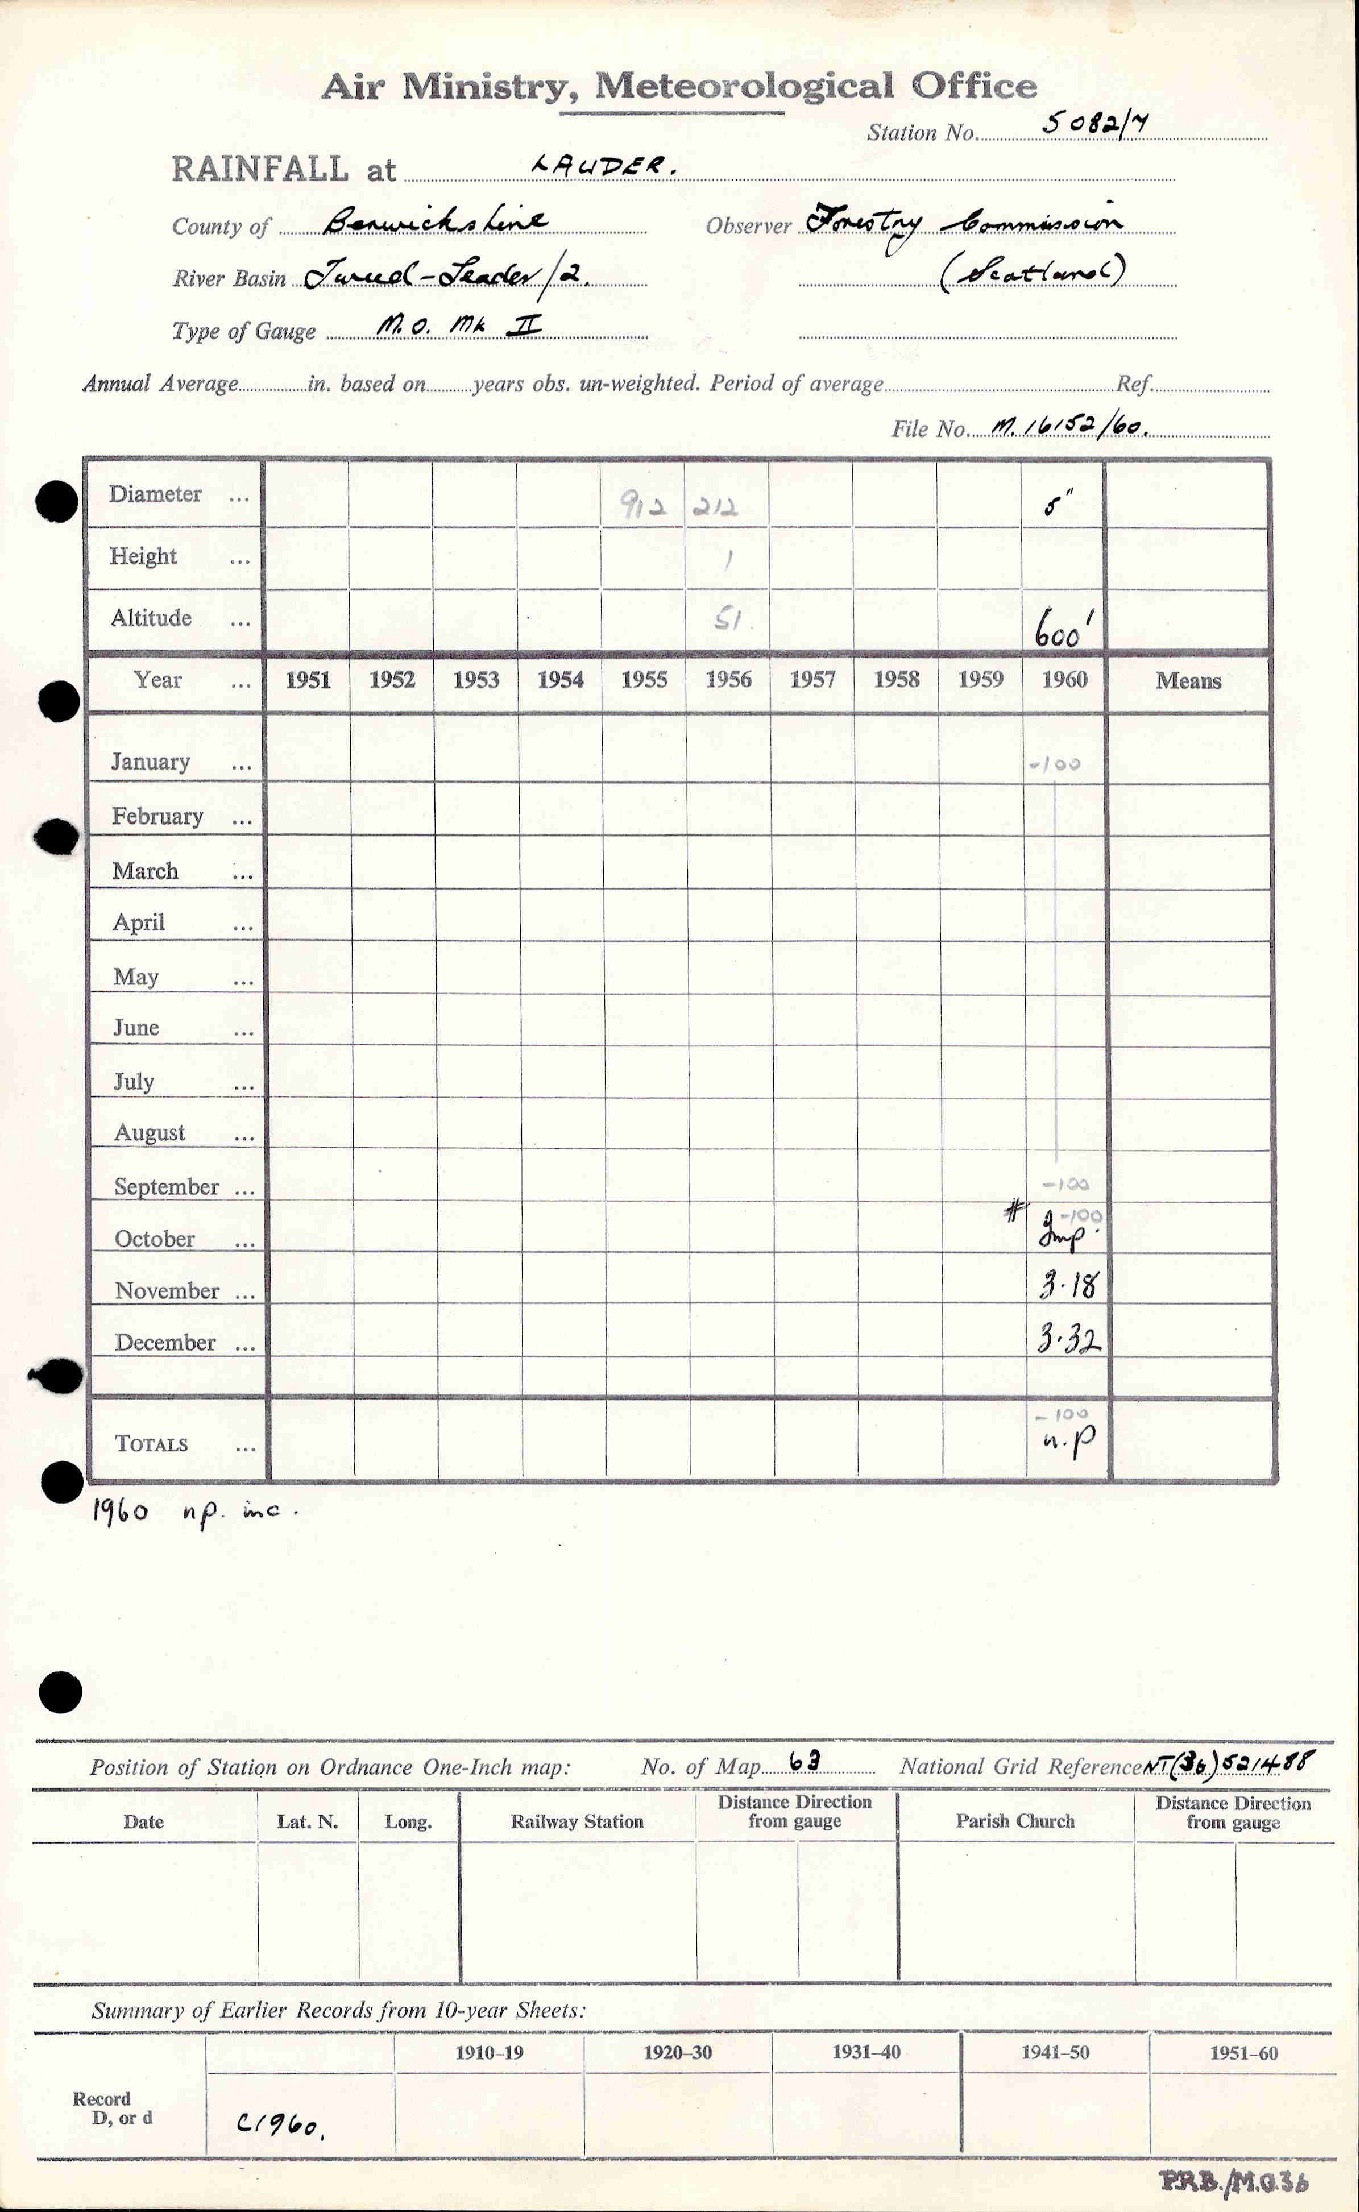 Air Ministry, Meteorological Office
Station No. 5082/7
RAINFALL at LAUDER.
County of Berwickshire Observer Forestry Commission
River Basin Tweed-Leader/2. (Scotland)
Type of Gauge M.O. Mk II
Annual Average in. based on years obs. un-weighted. Period of average Ref.
File No. M.16152/60.
Diameter ... 912 212 5"
Height ... 1
Altitude ... 51. 600'
Year ... 1951 1952 1953 1954 1955 1956 1957 1958 1959 1960 Means
January ... -100
February ...
March ...
April ...
May ...
June ...
July ...
August ...
September ... -100
# -100
October ... Imp.
November ... 3.18
December ... 3.32
-100
TOTALS ... n.p
1960 np. inc.
Position of Station on Ordnance One-Inch map: No. of Map 63 National Grid Reference NT(36)521488
Date Lat. N. Long. Railway Station Distance Direction from gauge Parish Church Distance Direction from gauge
Summary of Earlier Records from 10-year Sheets:
1910-19 1920-30 1931-40 1941-50 1951-60
Record
D, or d C1960.
P.R.B./M.O.36